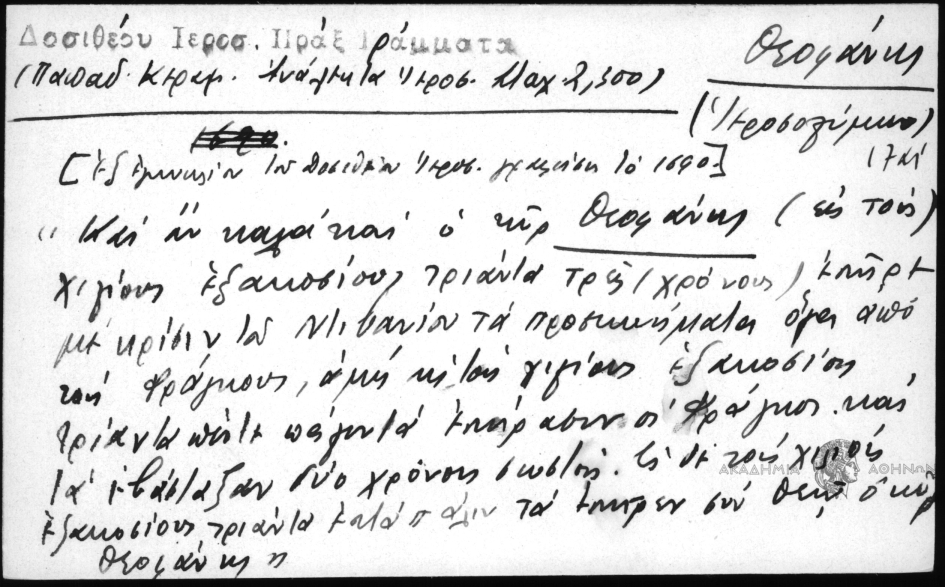 Δοσιθέου Ιεροσ. Πράξ Γράμματα
(Παπαδ. Κεραμ. Ἀνάλεκτα Ἱεροσ. Σταχ. 2, 300)
Θεοφάνης
(Ἱεροσολύμων)
17 αἰ
[Ἐξ ἐγκυκλίου τοῦ Δοσιθέου Ἱεροσ. γραφείσης τὸ 1690]
"Καὶ ἂν καλὰ καὶ ὁ κῦρ Θεοφάνης (εἰς τοὺς)
χιλίους ἑξακοσίους τριάντα τρεῖς (χρόνους) ἐπῆρε
μὲ κρίσιν τοῦ Ντιβανίου τὰ προσκυνήματα ὅλα ἀπὸ
τοὺς Φράγκους, ἀμὴ εἰς τοὺς χιλίους ἑξακοσίους
τριάντα πέντε πάλιν τὰ ἐπήρασιν οἱ Φράγκοι καὶ
τὰ ἐβάσταξαν δύο χρόνους σωστούς. Εἰς δὲ τοὺς χιλίους
ΑΚΑΔΗΜΙΑ ΑΘΗΝΩΝ
ἑξακοσίους τριάντα ἑπτὰ πάλιν τὰ ἐπῆρεν σὺν Θεῷ ὁ κῦρ
Θεοφάνης"